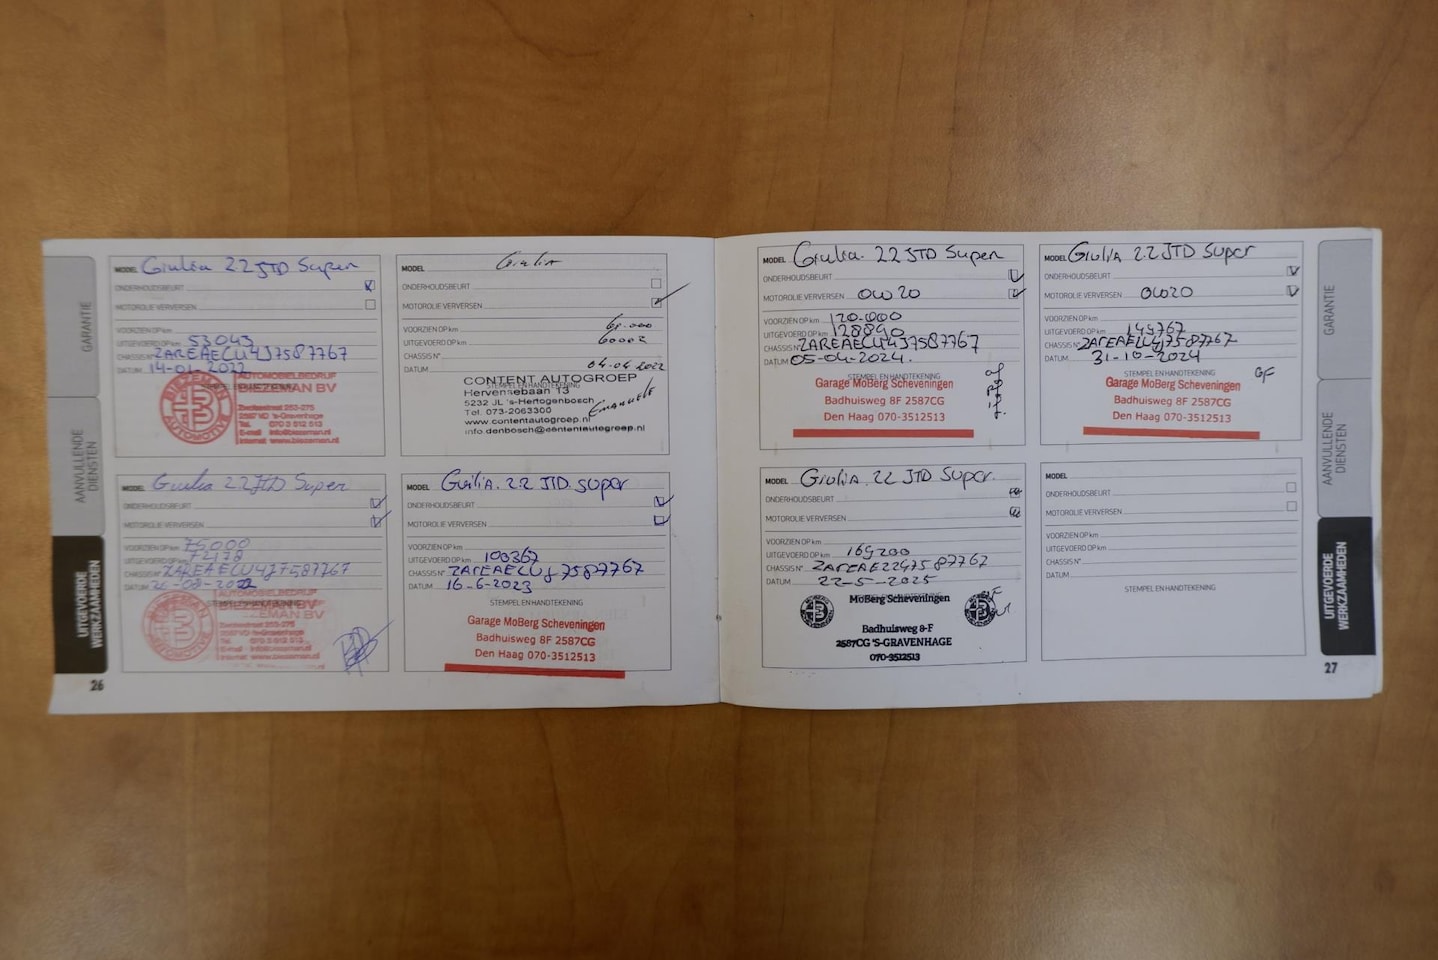 GARANTIE
AANVULLENDE
DIENSTEN
UITGEVOERDE
WERKZAAMHEDEN
26
MODEL Giulia 22 JTD Super
ONDERHOUDSBEURT
MOTOROLIE VERVERSEN
VOORZIEN OP km
UITGEVOERD OP km 53043
CHASSIS N° ZAREAECU4J7587767
DATUM 14-01-2022
AUTOMOBIELBEDRIJF
BIEZEMAN BV
Zwetsestraat 253-275
2587 VD 's-Gravenhage
Tel. 070 3 512 513
E-mail info@biezeman.nl
Internet www.biezeman.nl
BIEZEMAN
AUTOMOTIVE
MODEL Giulia
ONDERHOUDSBEURT
MOTOROLIE VERVERSEN
VOORZIEN OP km 60.000
UITGEVOERD OP km 60002
CHASSIS N°
DATUM 04.04 2022
STEMPEL EN HANDTEKENING
CONTENT AUTOGROEP
Hervensebaan 13
5232 JL 's-Hertogenbosch
Tel. 073-2063300
www.contentautogroep.nl
info.denbosch@contentautogroep.nl
Emanuele
MODEL Giulia 22 JTD Super
ONDERHOUDSBEURT
MOTOROLIE VERVERSEN
VOORZIEN OP km 75000
UITGEVOERD OP km 72178
CHASSIS N° ZAREAECU4J7587767
DATUM
AUTOMOBIELBEDRIJF
BIEZEMAN BV
2587 VD 's-Gravenhage
Tel. 070 3 512 513
E-mail info@biezeman.nl
Internet www.biezeman.nl
MODEL Guilia. 2.2 JTD super
ONDERHOUDSBEURT
MOTOROLIE VERVERSEN
VOORZIEN OP km
UITGEVOERD OP km 100367
CHASSIS N° ZAREAECUJ7587767
DATUM 16-6-2023
STEMPEL EN HANDTEKENING
Garage MoBerg Scheveningen
Badhuisweg 8F 2587CG
Den Haag 070-3512513
MODEL Giulia. 22 JTD Super
ONDERHOUDSBEURT
MOTOROLIE VERVERSEN 0W20
VOORZIEN OP km 120.000
UITGEVOERD OP km 128890
CHASSIS N° ZAREAECU4J7587767
DATUM 05-04-2024.
STEMPEL EN HANDTEKENING
Garage MoBerg Scheveningen
Badhuisweg 8F 2587CG
Den Haag 070-3512513
MODEL Giulia 2.2 JTD Super
ONDERHOUDSBEURT
MOTOROLIE VERVERSEN 0W20
VOORZIEN OP km
UITGEVOERD OP km 149767
CHASSIS N° ZAREAECU4J7587767
DATUM 31-10-2024
STEMPEL EN HANDTEKENING
GF
Garage MoBerg Scheveningen
Badhuisweg 8F 2587CG
Den Haag 070-3512513
MODEL Giulia. 22 JTD Super.
ONDERHOUDSBEURT
MOTOROLIE VERVERSEN
VOORZIEN OP km
UITGEVOERD OP km 169200
CHASSIS N° ZAREAE22475 87767
DATUM 22-5-2025
MoBerg Scheveningen
Badhuisweg 8-F
2587CG 'S-GRAVENHAGE
070-3512513
MODEL
ONDERHOUDSBEURT
MOTOROLIE VERVERSEN
VOORZIEN OP km
UITGEVOERD OP km
CHASSIS N°
DATUM
STEMPEL EN HANDTEKENING
GARANTIE
AANVULLENDE
DIENSTEN
UITGEVOERDE
WERKZAAMHEDEN
27